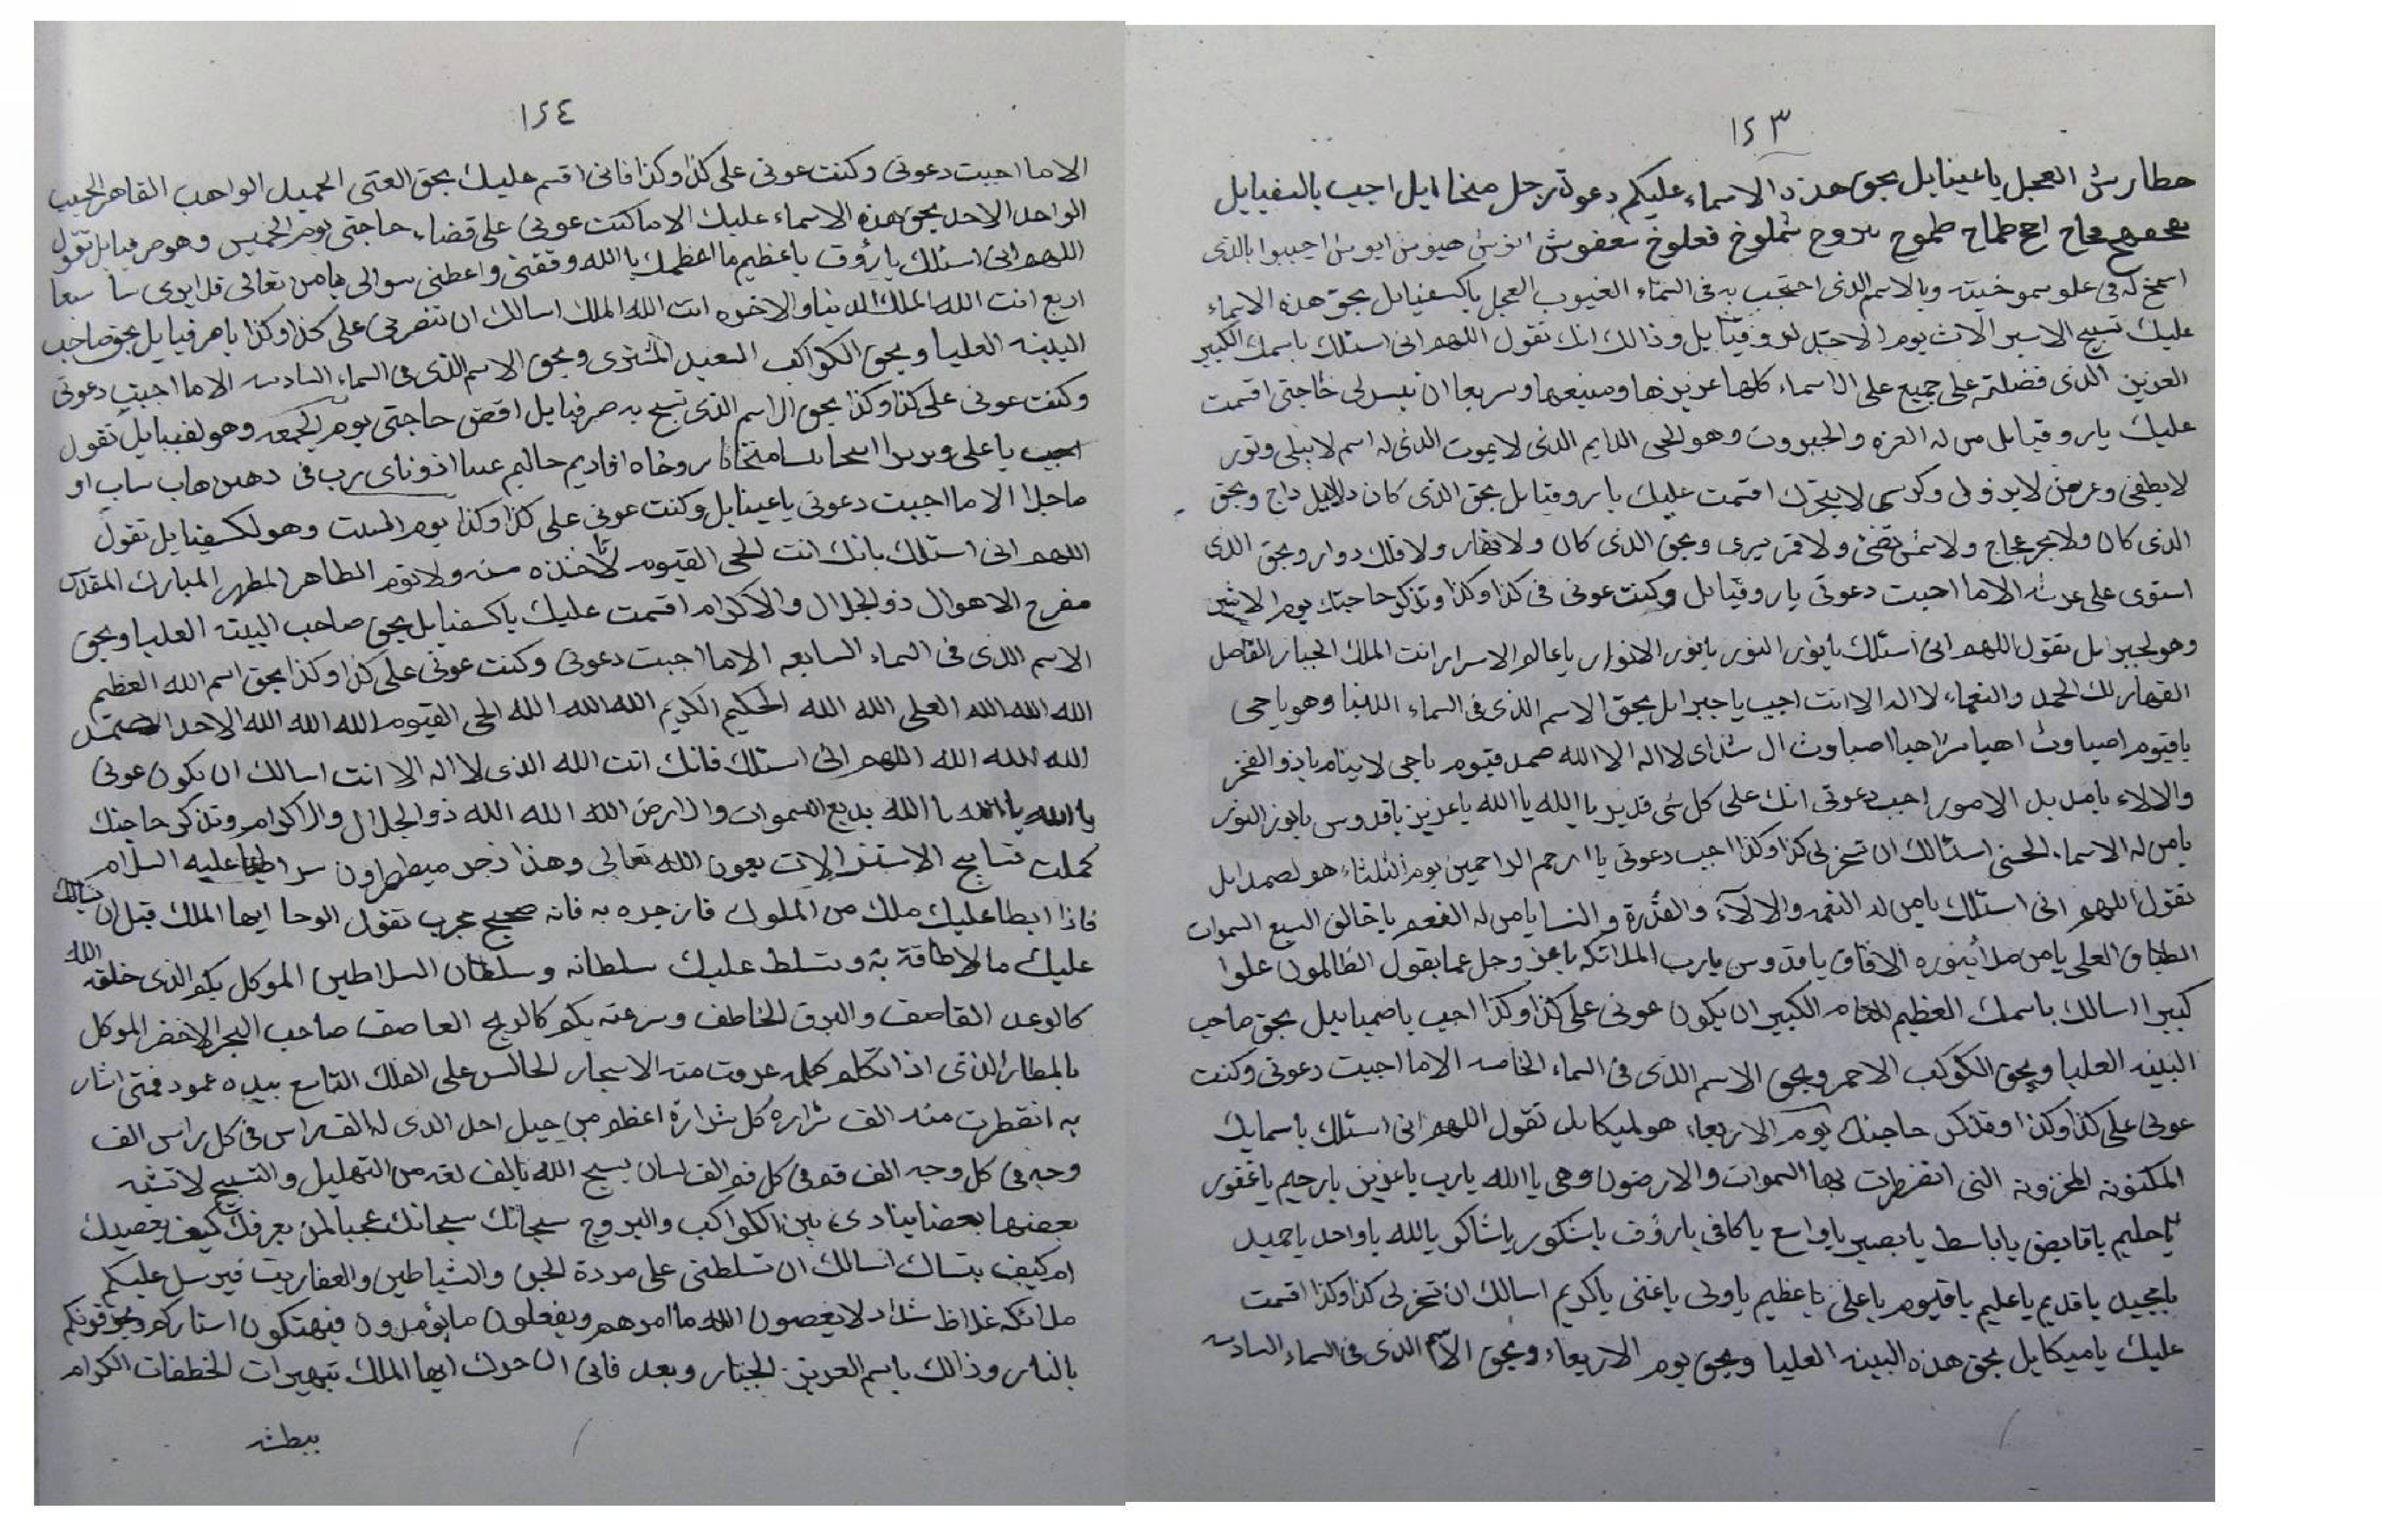 ١٢٣
العجل يا عينايل بحق هذه الاسماء عليكم دعوة رجل اجب
طماح طموح شملوخ اجيبوا بالذى
فى علو وبالاسم الذى احتجب به فى السماء الغيوب العجل ياكسفيايل بحق هذه الاسماء
عليك يوم الاحد لروقيايل وذالك انك تقول اللهم انى اسئلك باسمك الكبير
العزيز الذى فضلته على جميع على الاسماء كلها عزيزها ومنيعها وسريعا ان تيسر لى حاجتى اقسمت
عليك ياروقيايل من له العزه والجبروت وهو الحى الدايم الذى لا يموت الذى له اسم لا يبلى ونور
لا يطفى وعرض لا يزول وكرسى لا يتحرك اقسمت عليك ياروقيايل بحق الذى كان ولا ليل داج وبحق
الذى كان ولا بحر عجاج ولا شمس تضئ ولا قمر يسرى وبحق الذى كان ولا نهار ولا فلك دوار وبحق الذى
استوى على عرشه الاما اجبت دعوتى ياروقيايل وكنت عونى فى كذا وكذا وتذكر حاجتك يوم الاثنين
وهو لجبرايل تقول اللهم انى اسئلك يانور النور يانور الانوار ياعالم الاسرار انت الملك الجبار الفاصل
القهار لك الحمد والنعماء لا اله الا انت اجب ياجبرايل بحق الاسم الذى فى السماء الدنيا وهو ياحى
ياقيوم اصباوث اهيا شراهيا اصباوث ال شداى لا اله الا الله صمد قيوم ياحى لا ينام ياذو الفخر
والالاء يامدبر الامور اجب دعوتى انك على كل شى قدير ياالله ياالله ياعزيز ياقدوس يانور النور
يامن له الاسماء الحسنى اسئالك ان تسخر لى كذا وكذا اجب دعوتى ياارحم الراحمين يوم الثلثاء هو لصمدايل
تقول اللهم انى اسئلك يامن له النعمه والالآء والقدرة والسنا يامن له الفعم ياخالق السبع السموات
الطباق العلى يامن ملأ بنوره الافاق ياقدوس يارب الملائكه ياعز وجل عما يقول الظالمون علوا
كبيرا اسالك باسمك العظيم التام الكبير ان يكون عونى على كذا وكذا اجب بحق صاحب
البينه العليا وبحق الكوكب الاحمر وبحق الاسم الذى فى السماء الخامسه الاما اجبت دعوتى وكنت
عونى على كذا وكذا وتذكر حاجتك يوم الاربعاء هو لميكايل تقول اللهم انى اسئلك باسمايك
المكنونه المخزونه التى انفطرت بها السموات والارضون وهى ياالله يارب ياعزيز يارحيم ياغفور
ياحليم ياقابض ياباسط يابصير ياواسع ياكافى يارؤف ياشكور ياشاكر ياالله ياواحد ياحميد
يامجيد ياقديم ياعليم ياقيوم ياعلى ياعظيم ياولى ياغنى ياكريم اسالك ان تسخر لى كذا وكذا اقسمت
عليك ياميكايل بحق هذه البينه العليا وبحق يوم الاربعاء وبحق الاسم الذى فى السماء السادسه
١٢٤
الاما اجبت دعوتى وكنت عونى على كذا وكذا فانى اقسم عليك بحق الغنى الحميد الواهب القاهر
الواحد الاحد بحق هذه الاسماء عليك الاما كنت عونى على قضاء حاجتى يوم الخميس وهو صرفيايل تقول
اللهم انى اسئلك يارؤف ياعظيم ما اعظمك ياالله وفقنى واعطنى سوالى يامن تعالى
انت الله الملك الدنيا والاخره انت الله الملك اسالك ان تنصرنى على كذا وكذا ياصرفيايل بحق صاحب
البينه العليا وبحق الكواكب السعيد المشترى وبحق الاسم الذى فى السماء السادسه الاما اجبت دعوتى
وكنت عونى على كذا وكذا بحق الاسم الذى تسبح به صرفيايل اقض حاجتى يوم الجمعه وهو لعينايل تقول
اجب ياعلى
الاما اجبت دعوتى ياعينايل وكنت عونى على كذا وكذا يوم السبت وهو لكسفيايل تقول
اللهم انى اسئلك بانك انت الحى القيوم لا تاخذه سنه ولا نوم الطاهر المطهر المبارك المقدس
مفرج الاهوال ذو الجلال والاكرام اقسمت عليك ياكسفيايل بحق صاحب البينه العليا وبحق
الاسم الذى فى السماء السابعه الاما اجبت دعوتى وكنت عونى على كذا وكذا بحق اسم الله العظيم
الله الله الله العلى الله الله الحكيم الكريم الله الله الله الحى القيوم الله الله الله الاحد الصمد
الله الله الله اللهم انى اسئلك فانك انت الله الذى لا اله الا انت اسالك ان يكون عونى
ياالله ياالله ياالله بديع السموات والارض الله الله الله ذو الجلال والاكرام وتذكر حاجتك
كملت تسابيح الاستنزالات بعون الله تعالى وهذا زجر ميططرون عليه السلام
فاذا ابطا عليك ملك من الملوك فازجره به فانه صحيح مجرب تقول الوحا ايها الملك قبل ان
عليك ما لا طاقة به وتسلط عليك سلطانه وسلطان السلاطين الموكل بكم الذى خلقه الله
كالرعد القاصف والبرق الخاطف وسرعته بكم كالريح العاصف صاحب البحر الاخضر الموكل
الذى اذا تكلم الجالس على الفلك التاسع بيده عمود فمتى اشار
به انقطرت منه الف شراره كل شرارة اعظم من جبل احد الذى له الف راس فى كل راس الف
وجه فى كل وجه الف فم فى كل فم الف لسان يسبح الله بالف لغه من التهليل والتسبيح لا تشبه
بعضها بعضا ينادى بين الكواكب والبروج سبحانك سبحانك عجبا لمن يعرفك كيف يعصيك
ام كيف ينساك اسالك ان تسلطنى على مردة الجن والشياطين والعفاريت فيرسل عليكم
ملائكه غلاظ شداد لا يعصون الله ما امرهم ويفعلون ما يؤمرون فيهتكون استاركم ويحرقونكم
بالنار وذالك باسم العزيز الجبار وبعد فانى ايها الملك الخطفات الكرام
ببطشه